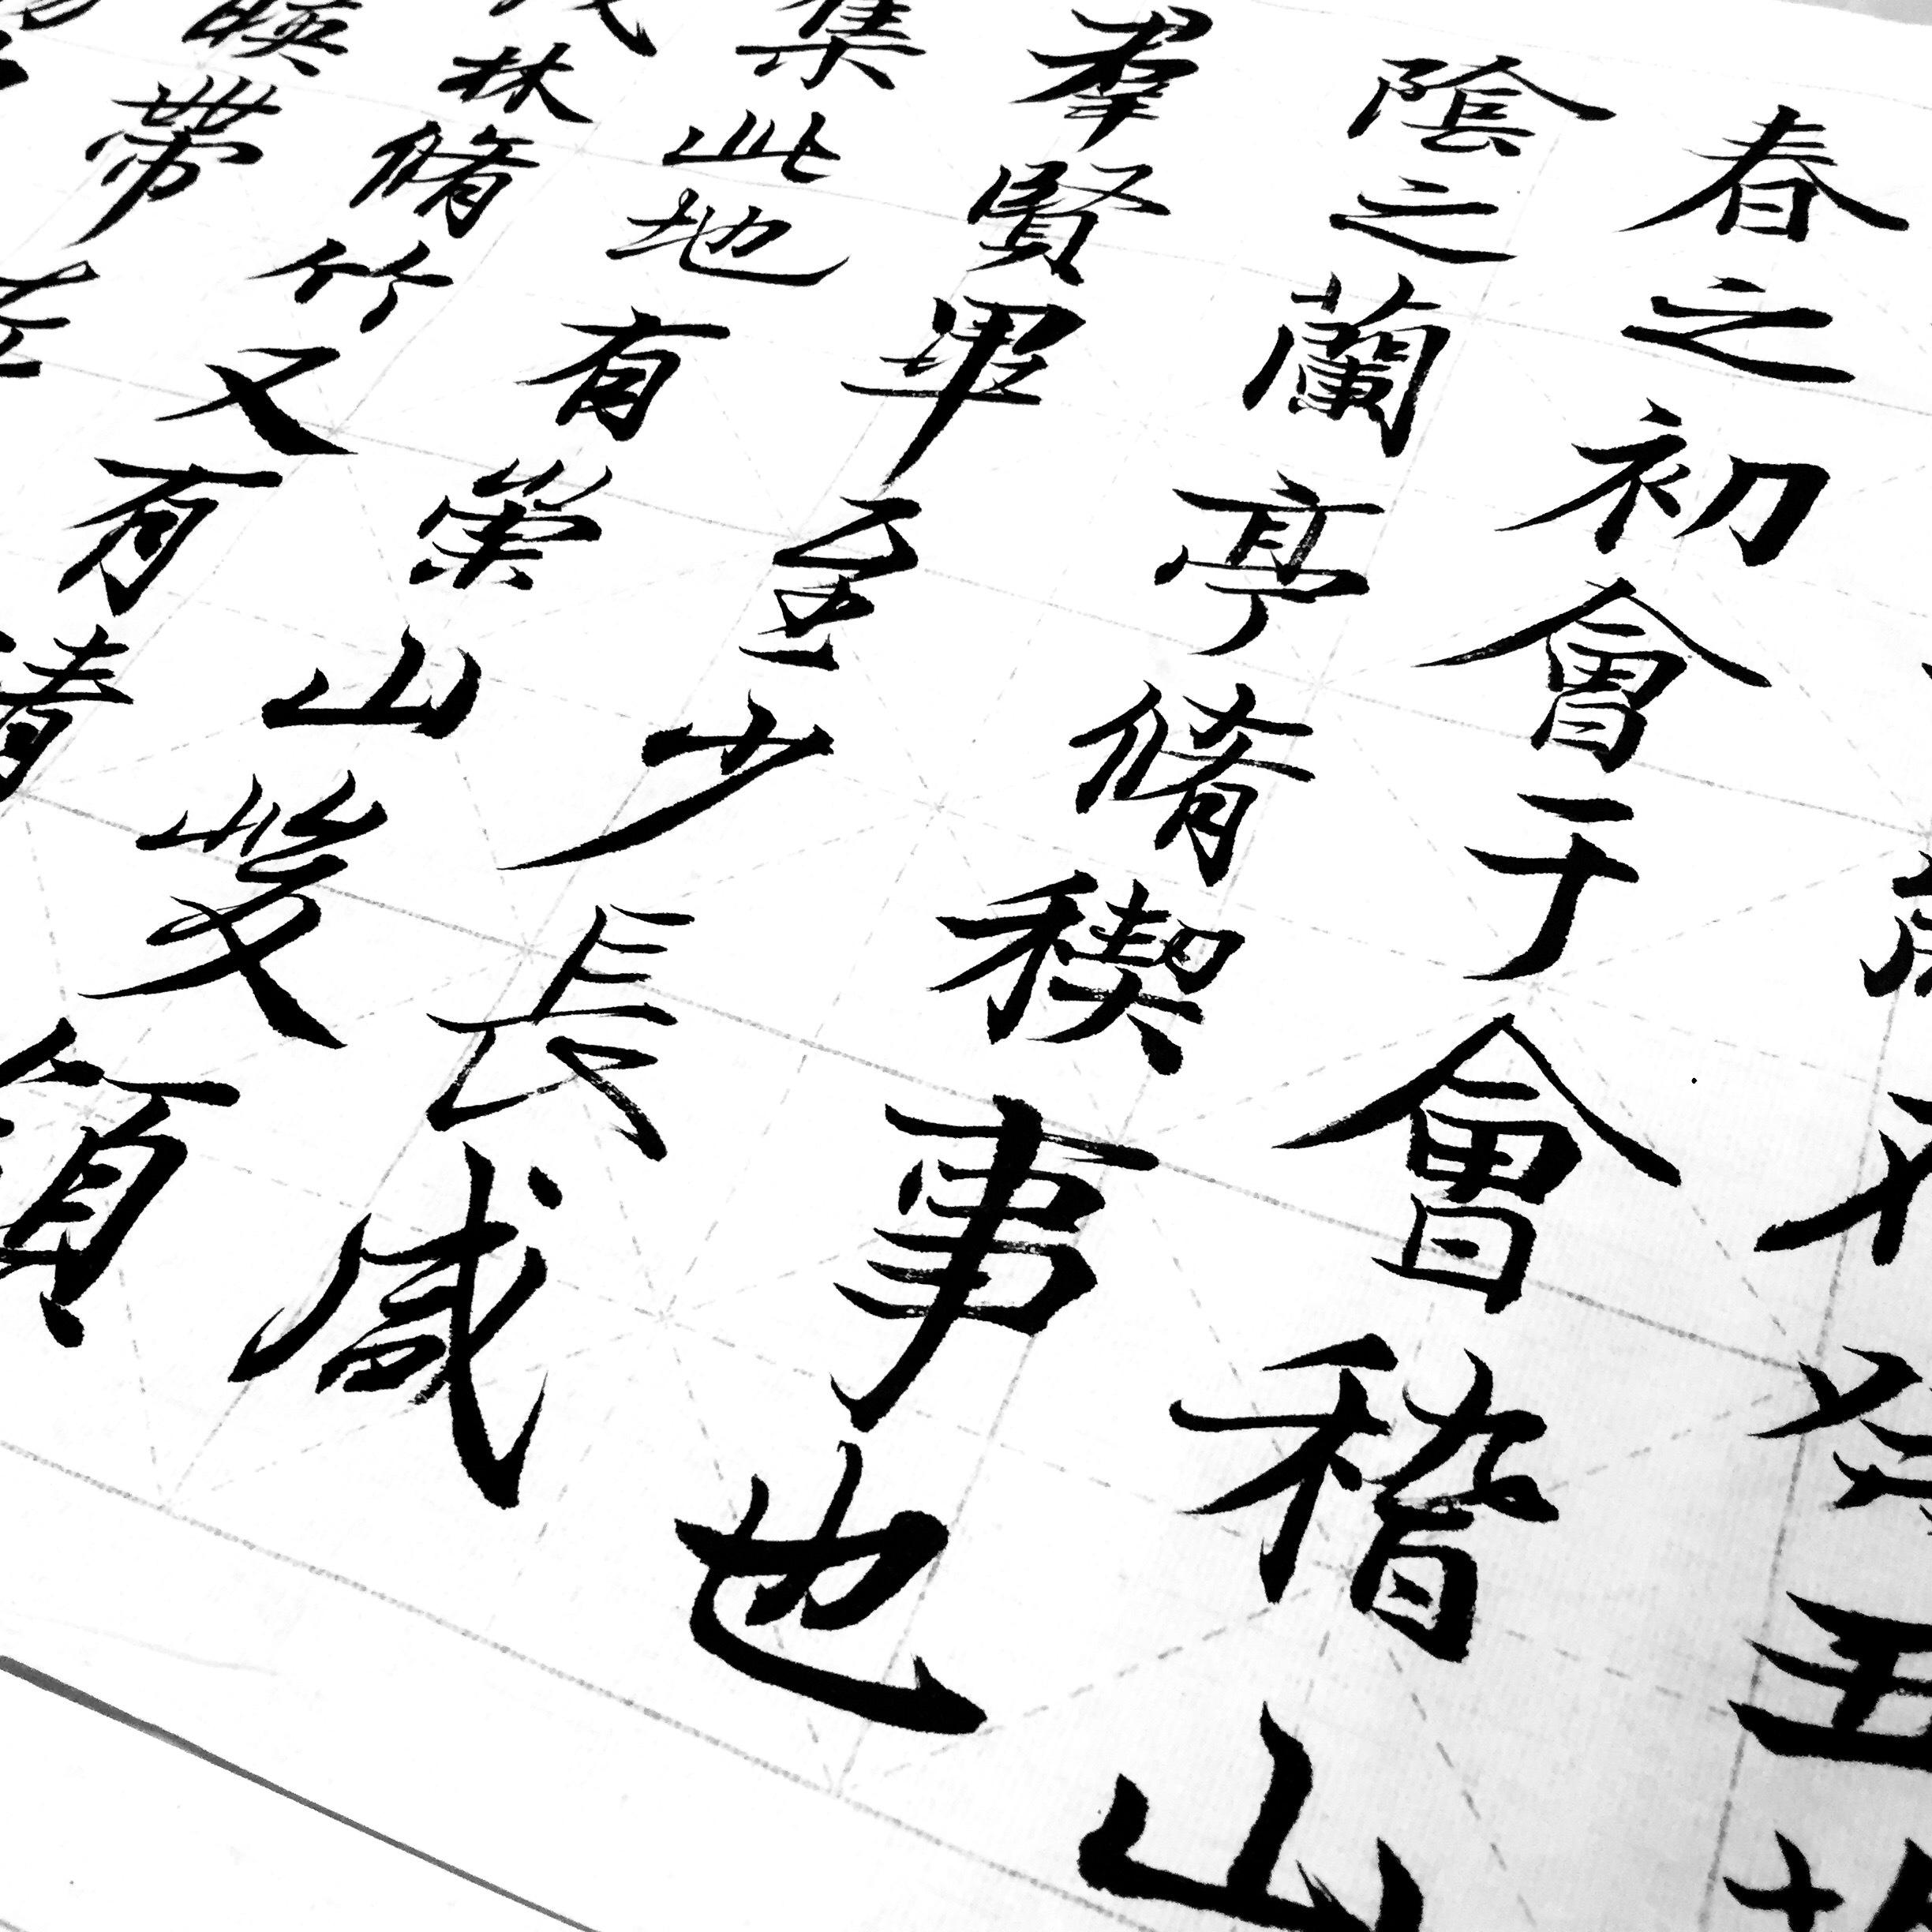 在癸丑
春之初會于會稽山
陰之蘭亭脩稧事也
羣賢畢至少長咸
集此地有崇山峻領
茂林脩竹又有清
暎帶左